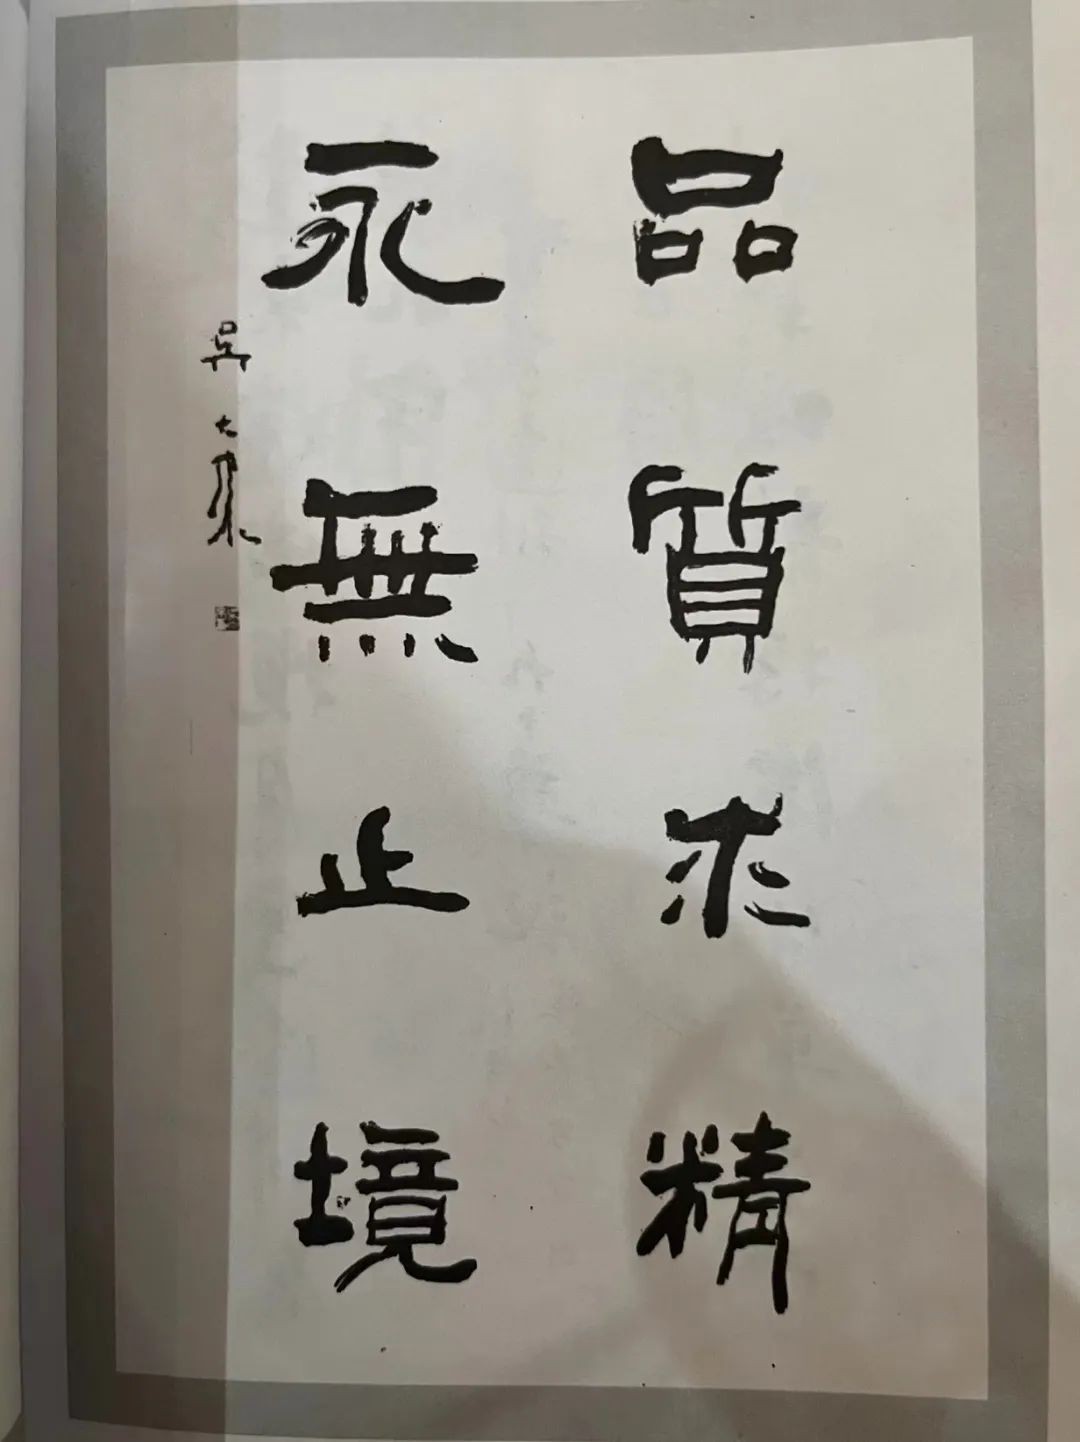 品質求精
永無止境
吳大